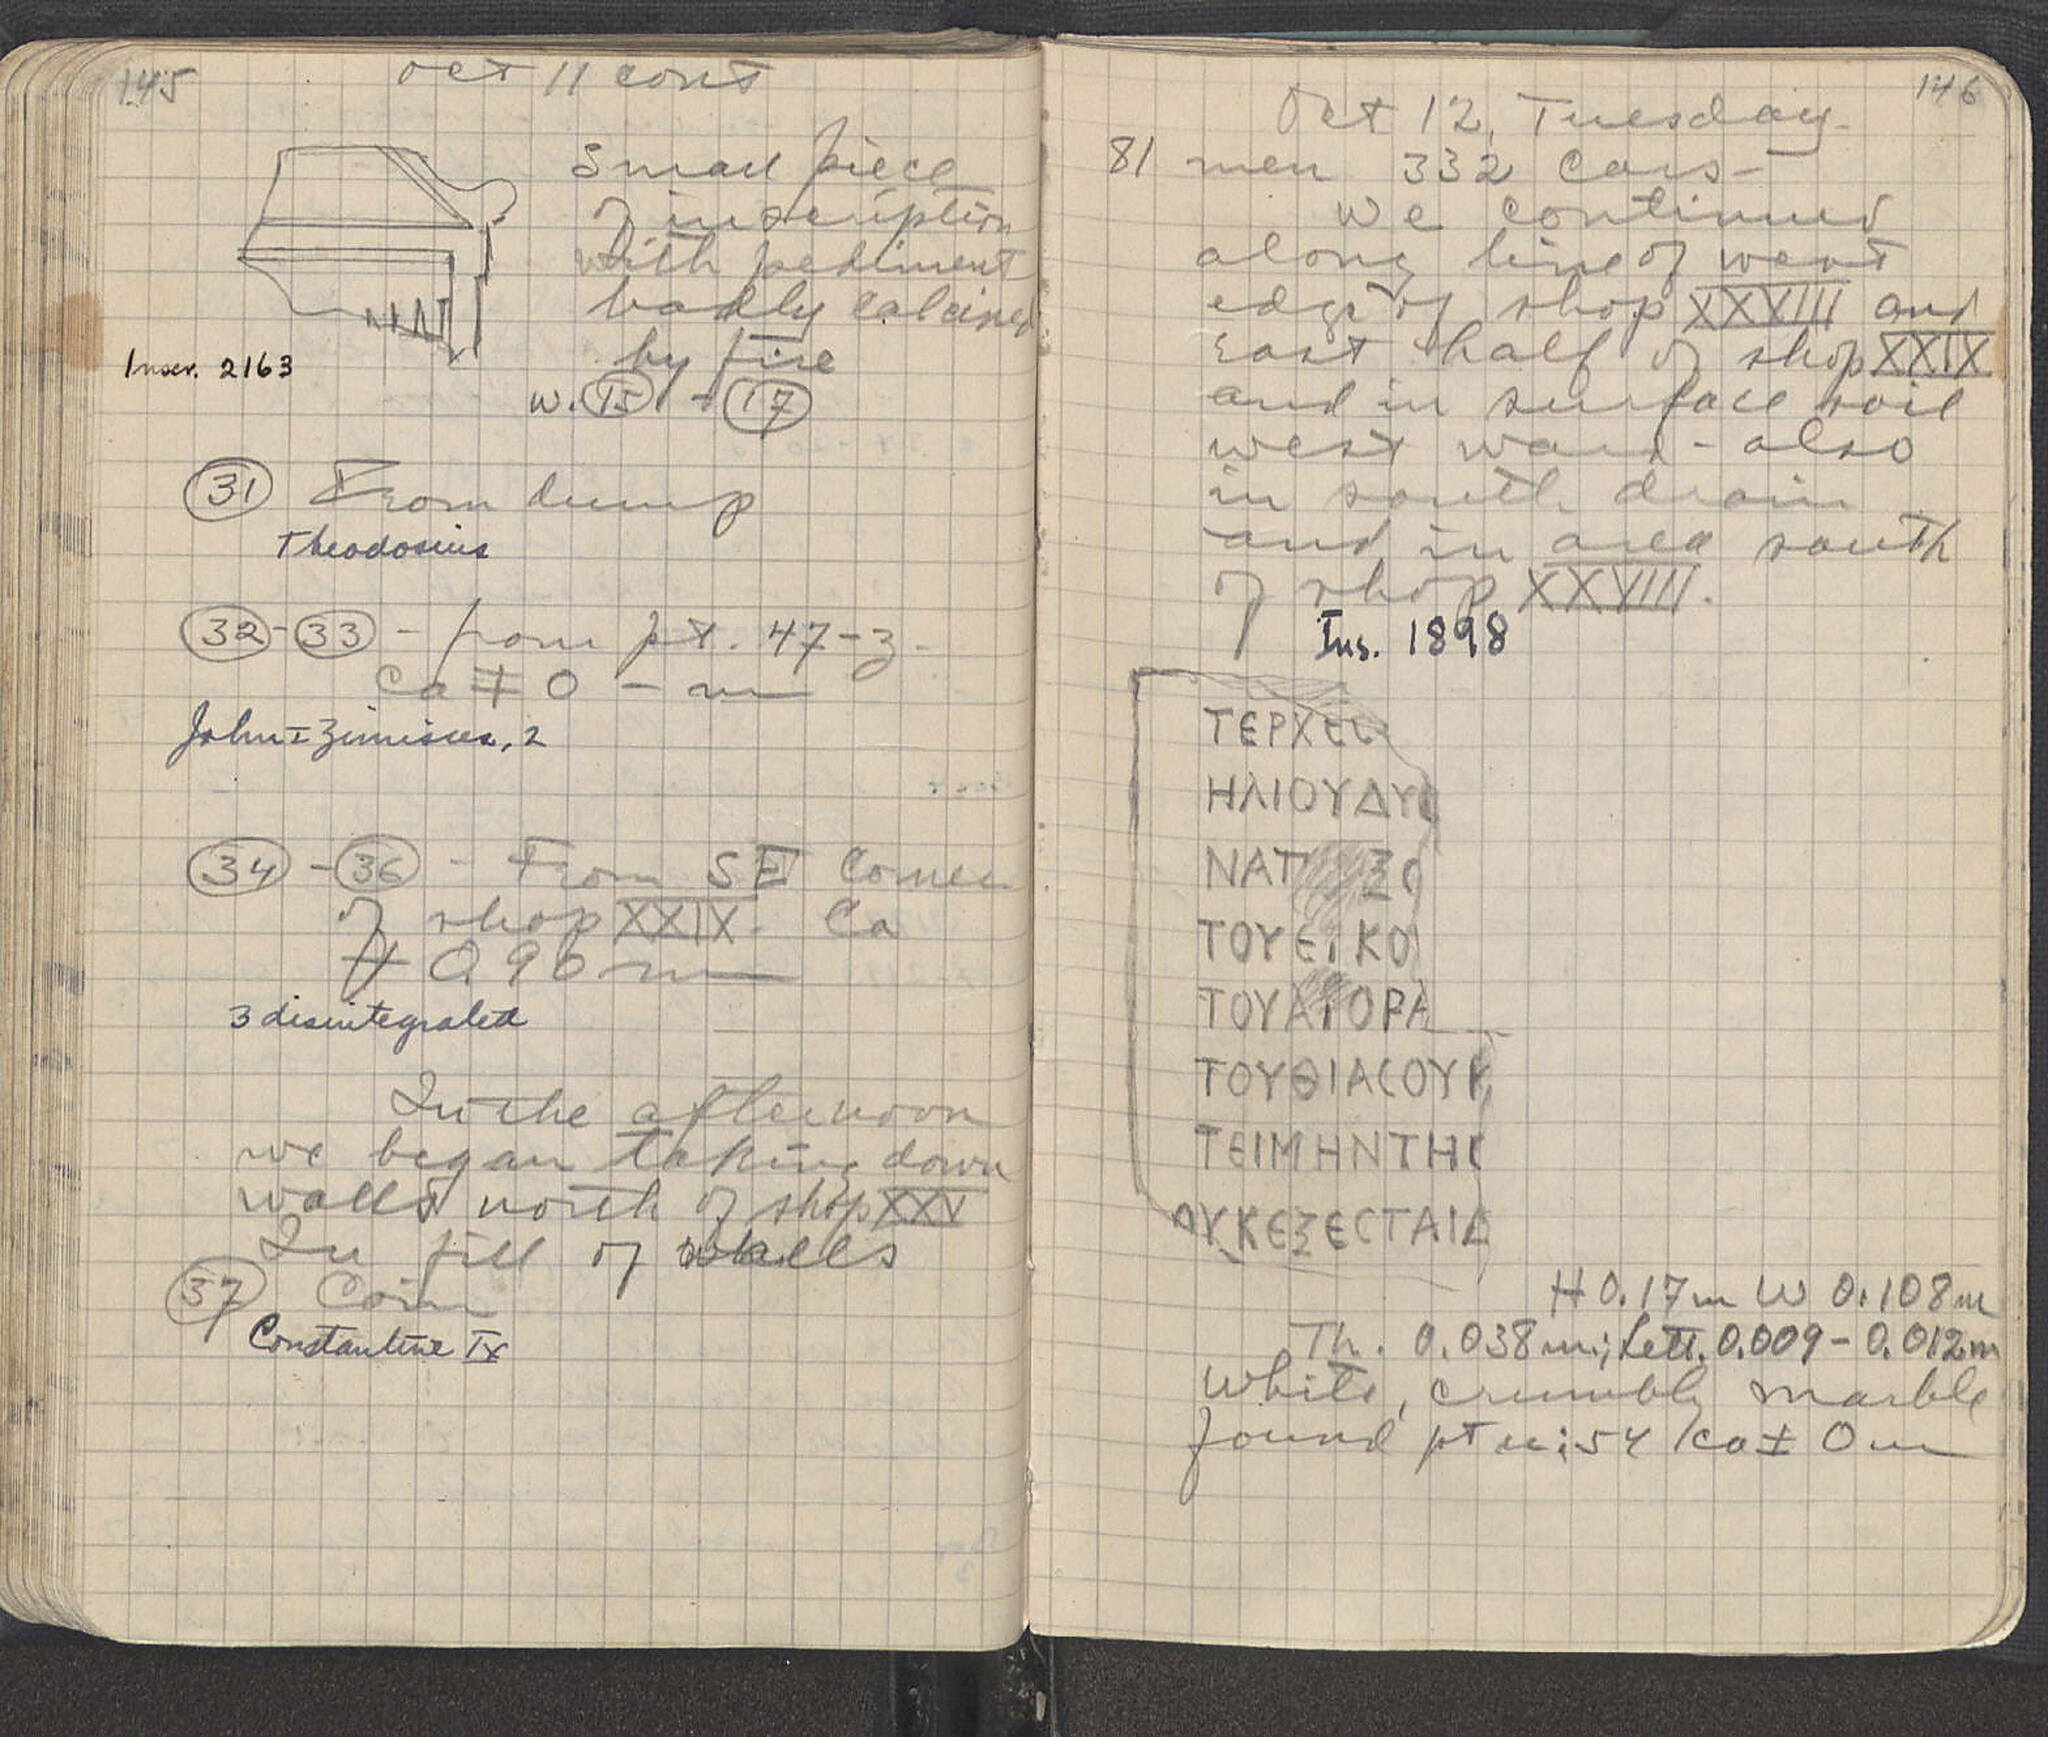 145
Oct 11 cont
Small piece
of inscription
with pediment
badly calcined
by fire
Inscr. 2163
w. 15 + 17
31 From dump
Theodosius
32 - 33 - from pt. 47-3.
ca ± 0 - m
John I Zimisces, 2
34 - 36 - From SE Corner
of shop XXIX. Ca
+ 0.90 m
3 disintegrated
In the afternoon
we began taking down
walls north of shop XXV
In fill of walls
37 Coin
Constantine IX
146
Oct 12, Tuesday
81 men 332 cars -
We continued
along line of west
edge of shop XXVIII and
east half of shop XXIX
and in surface soil
west ward - also
in south drain
and in area south
of shop XXVIII.
Ins. 1898
ΤΕΡΧΕΙ
ΗΛΙΟΥΔΥ
ΝΑΤ ΞΟ
ΤΟΥΕΙΚΟ
ΤΟΥΑΓΟΡΑ
ΤΟΥΘΙΑϹΟΥΚ
ΤΕΙΜΗΝΤΗϹ
ΟΥΚΕΞΕϹΤΑΙΔ
H 0.17m W 0.108m
Th. 0.038m; Lett. 0.009-0.012m
White, crumbly marble
found pt 54 /ca ± 0m